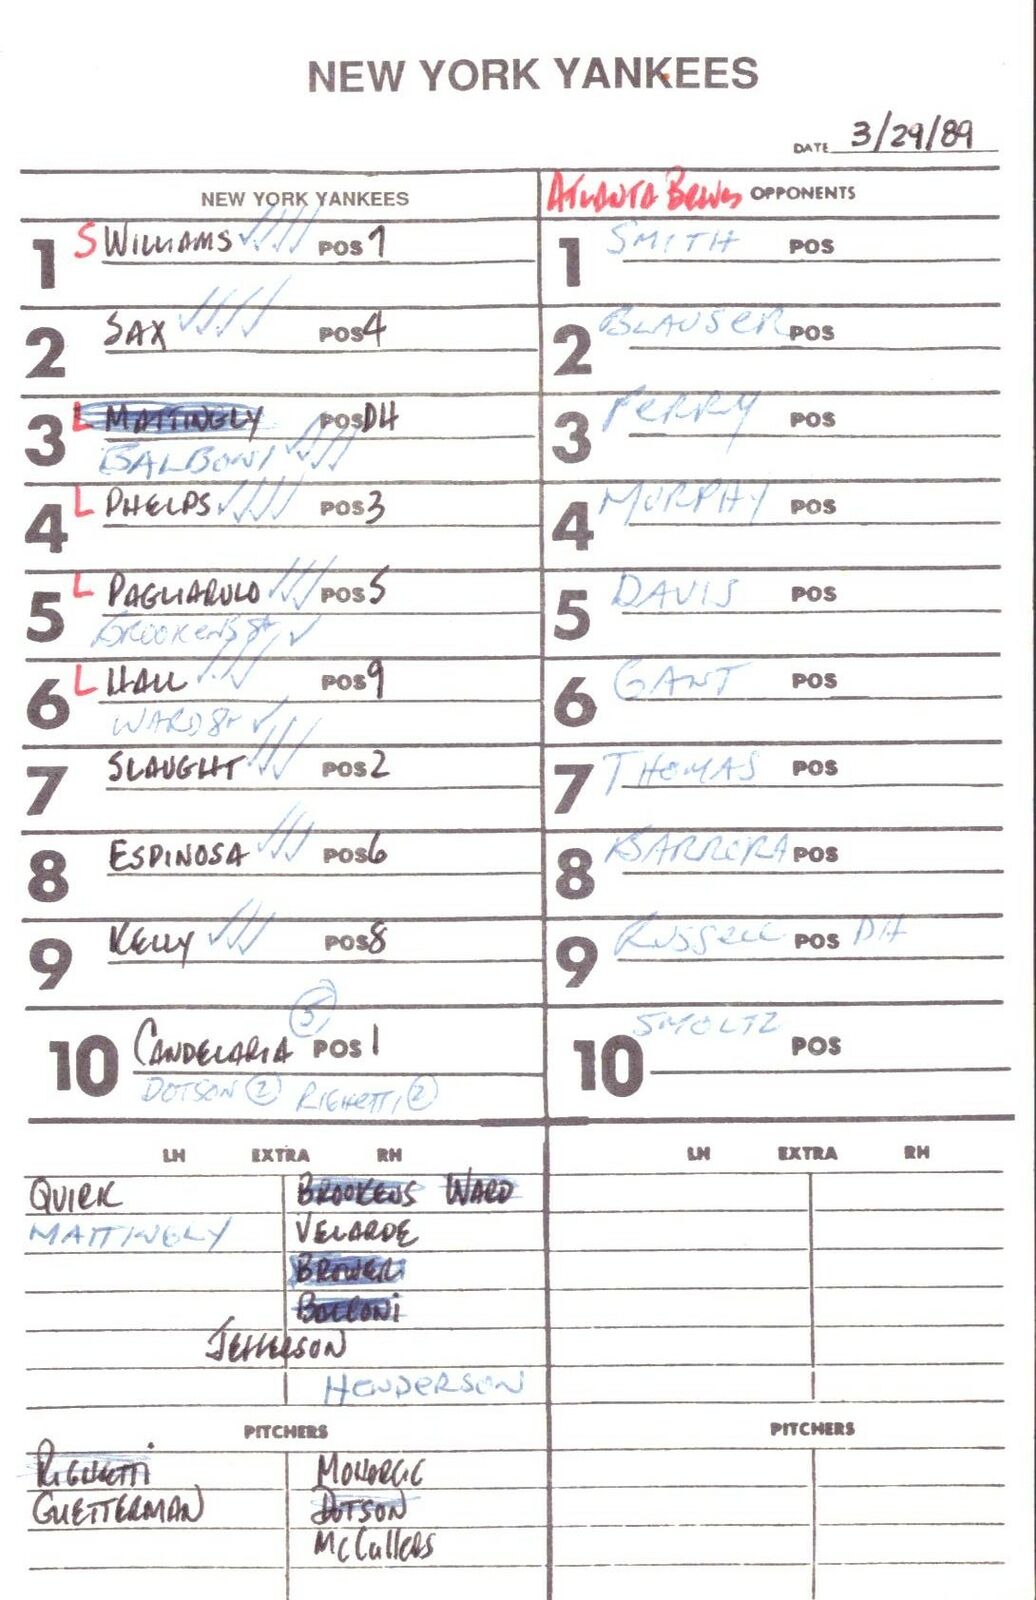 NEW YORK YANKEES
DATE 3/29/89
NEW YORK YANKEES
ATLANTA BRAVES OPPONENTS
1 S WILLIAMS POS 7
1 SMITH POS
2 SAX POS 4
2 BLAUSER POS
3 L MATTINGLY POS DH
BALBONI
3 PERRY POS
4 L PHELPS POS 3
4 MURPHY POS
5 L PAGLIARULO POS 5
BROOKENS 8+
5 DAVIS POS
6 L HALL POS 9
WARD 8+
6 GANT POS
7 SLAUGHT POS 2
7 THOMAS POS
8 ESPINOSA POS 6
8 BARRERA POS
9 KELLY POS 8
9 RUSSELL POS DH
10 CANDELARIA 5 POS 1
DOTSON 2 RIGHETTI 2
10 SMOLTZ POS
LH EXTRA RH
LH EXTRA RH
QUIRK BROOKENS WARD
MATTINGLY VELARDE
BROWER
BALBONI
JEFFERSON
HENDERSON
PITCHERS
PITCHERS
RIGHETTI MOHORCIC
GUETTERMAN DOTSON
McCullers